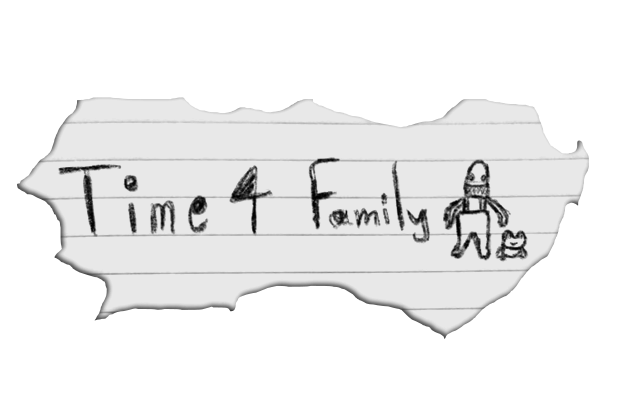 Time 4 Family